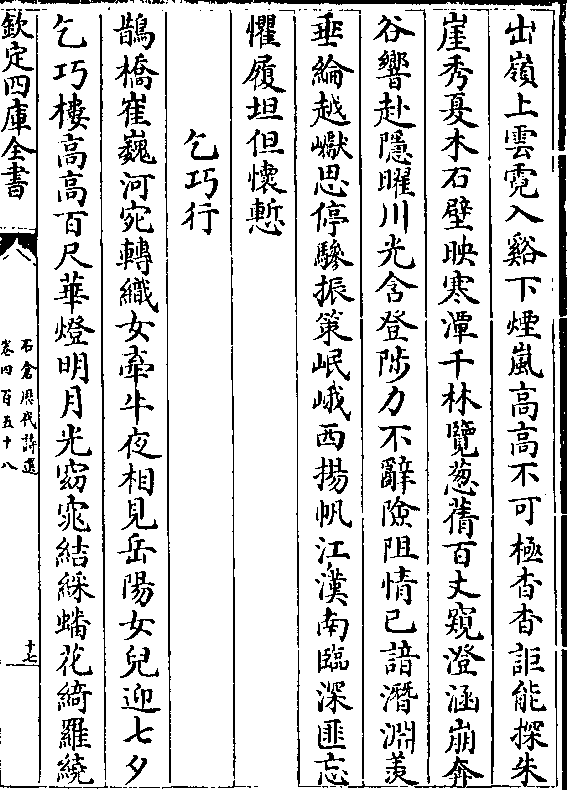 出嶺上雲霓入谿下煙嵐高高不可極杳杳詎能探朱
崖秀夏木石壁映寒潭千林覽葱蒨百丈窺澄涵崩奔
谷響赴隱曜川光含登陟力不辭險阻情已諳潛淵羨
垂綸越巘思停驂振策岷峨西揚帆江漢南臨深匪忘
懼履坦但懷慙
乞巧行
鵲橋崔巍河宛轉織女牽牛夜相見岳陽女兒迎七夕
乞巧樓高高百尺華燈明月光窈窕結綵蟠花綺羅繞
欽定四庫全書
石倉歷代詩選
卷四百五十八
十七